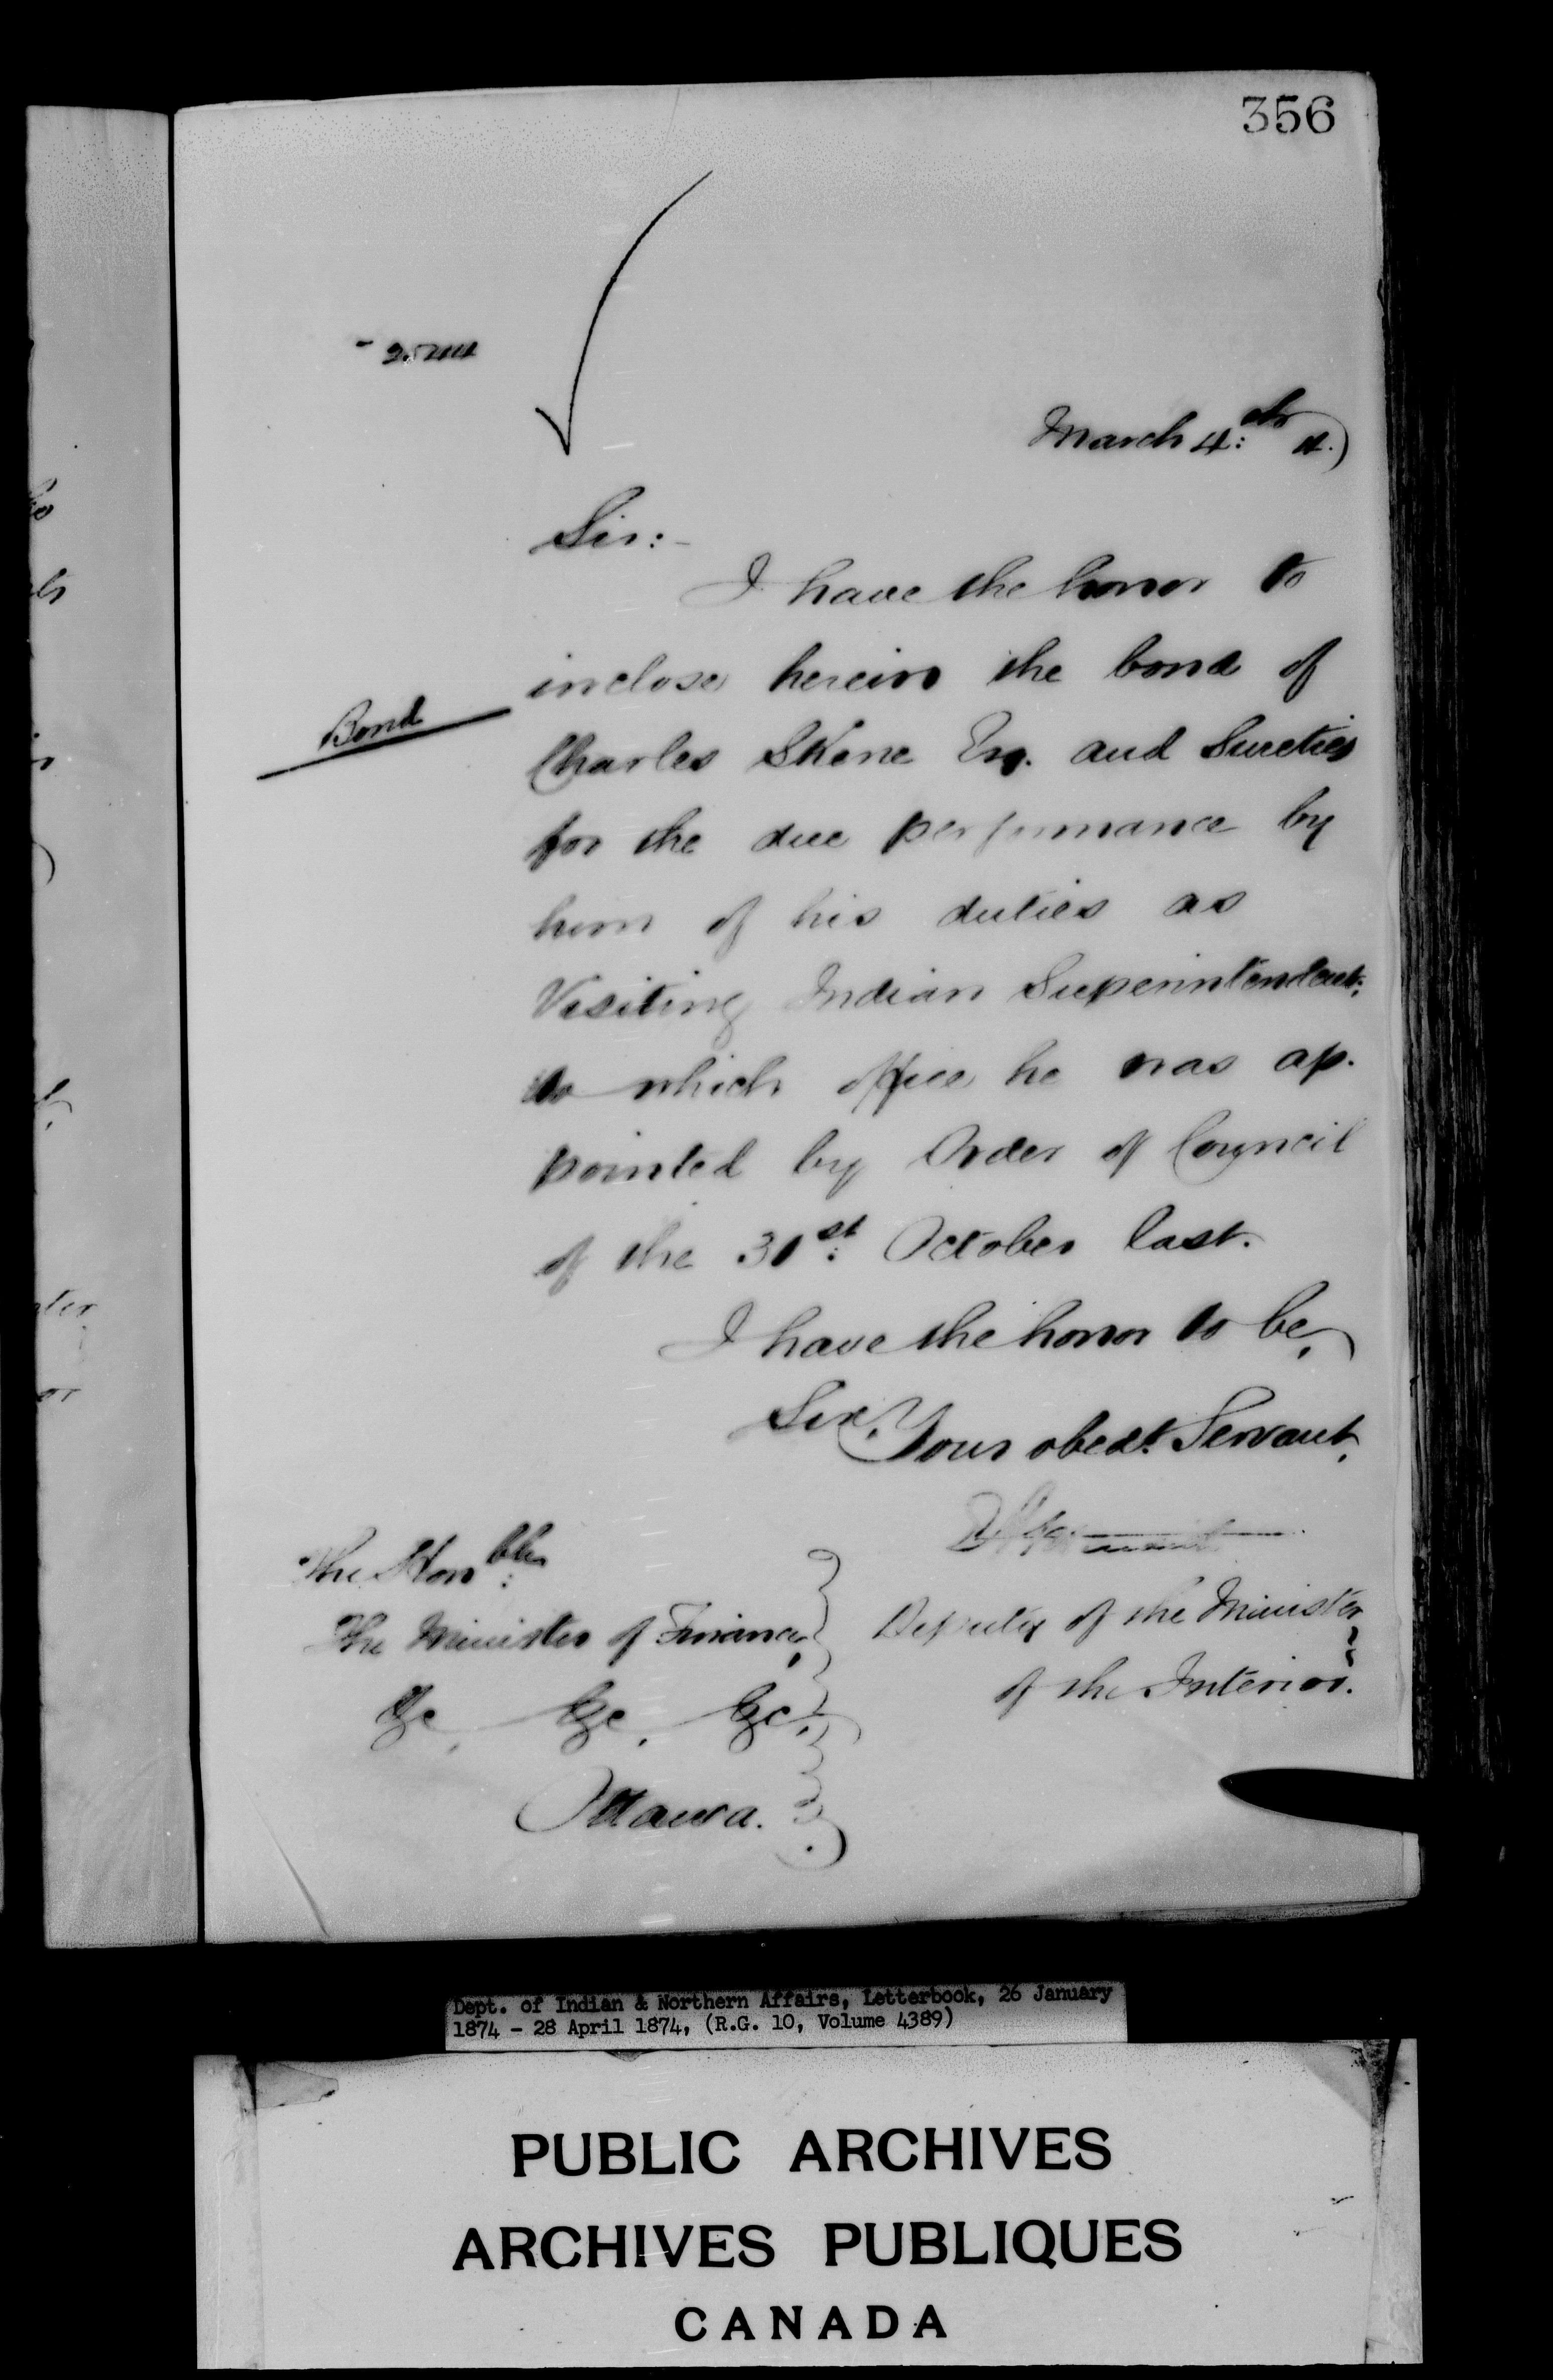 356
March 4:th 4.)
Sir:-
I have the honor to
inclose herein the bond of
Bond
Charles Skene Esq. and Sureties
for the due performance by
him of his duties as
Visiting Indian Superintendent;
to which office he was ap.
pointed by Order of Council
of the 31st: October last.
I have the honor to be,
Sir,
Your obedt. Servant,
The Honble:
The Minister of Finance,
&c, &c, &c,
Ottawa.
Deputy of the Minister
of the Interior.
Dept. of Indian & Northern Affairs, Letterbook, 26 January
1874 - 28 April 1874, (R.G. 10, Volume 4389)
PUBLIC ARCHIVES
ARCHIVES PUBLIQUES
CANADA